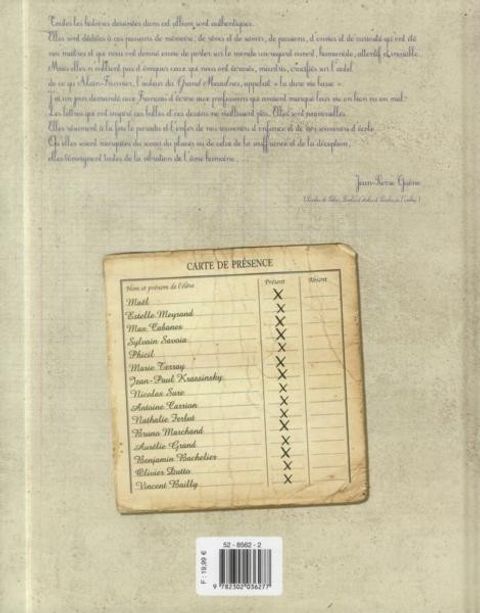 Toutes les histoires dessinées dans cet album sont authentiques.
Elles sont dédiées à ces passeurs de mémoire, de rêves et de savoirs, de passions, d'envies et de curiosité qui ont été
nos maîtres et qui nous ont donné envie de porter sur le monde un regard ouvert, humaniste, attentif
Mais elles n'oublient pas d'évoquer ceux qui nous ont écrasés, meurtris, crucifiés sur l'autel
de ce qu'Alain-Fournier, l'auteur du Grand Meaulnes, appelait « la dure vie basse ».
J'ai un jour demandé aux Français d'écrire aux professeurs qui avaient marqué leur vie en bien ou en mal.
Les lettres qui ont inspiré ces bulles et ces dessins ne vieillissent pas. Elles sont
Elles résument à la fois le paradis et l'enfer de nos souvenirs d'enfance et de nos souvenirs d'école.
Qu'elles soient marquées du sceau du plaisir ou de celui de la souffrance et de la déception,
elles témoignent toutes de la vibration de l'âme humaine...
Jean-Pierre Guéno
CARTE DE PRÉSENCE
Nom et prénom de l'élève Présent Absent
Maël X
Estelle Meyrand X
Max Cabanes X
Sylvain Savoia X
Phicil X
Marie Terray X
Jean-Paul Krassinsky X
Nicolas Sure X
Antoine Carrion X
Nathalie Ferlut X
Bruno Marchand X
Aurélie Grand X
Benjamin Bachelier X
Olivier Dutto X
Vincent Bailly X
52 - 8562 - 2
F : 19,99 €
9 782302 036277